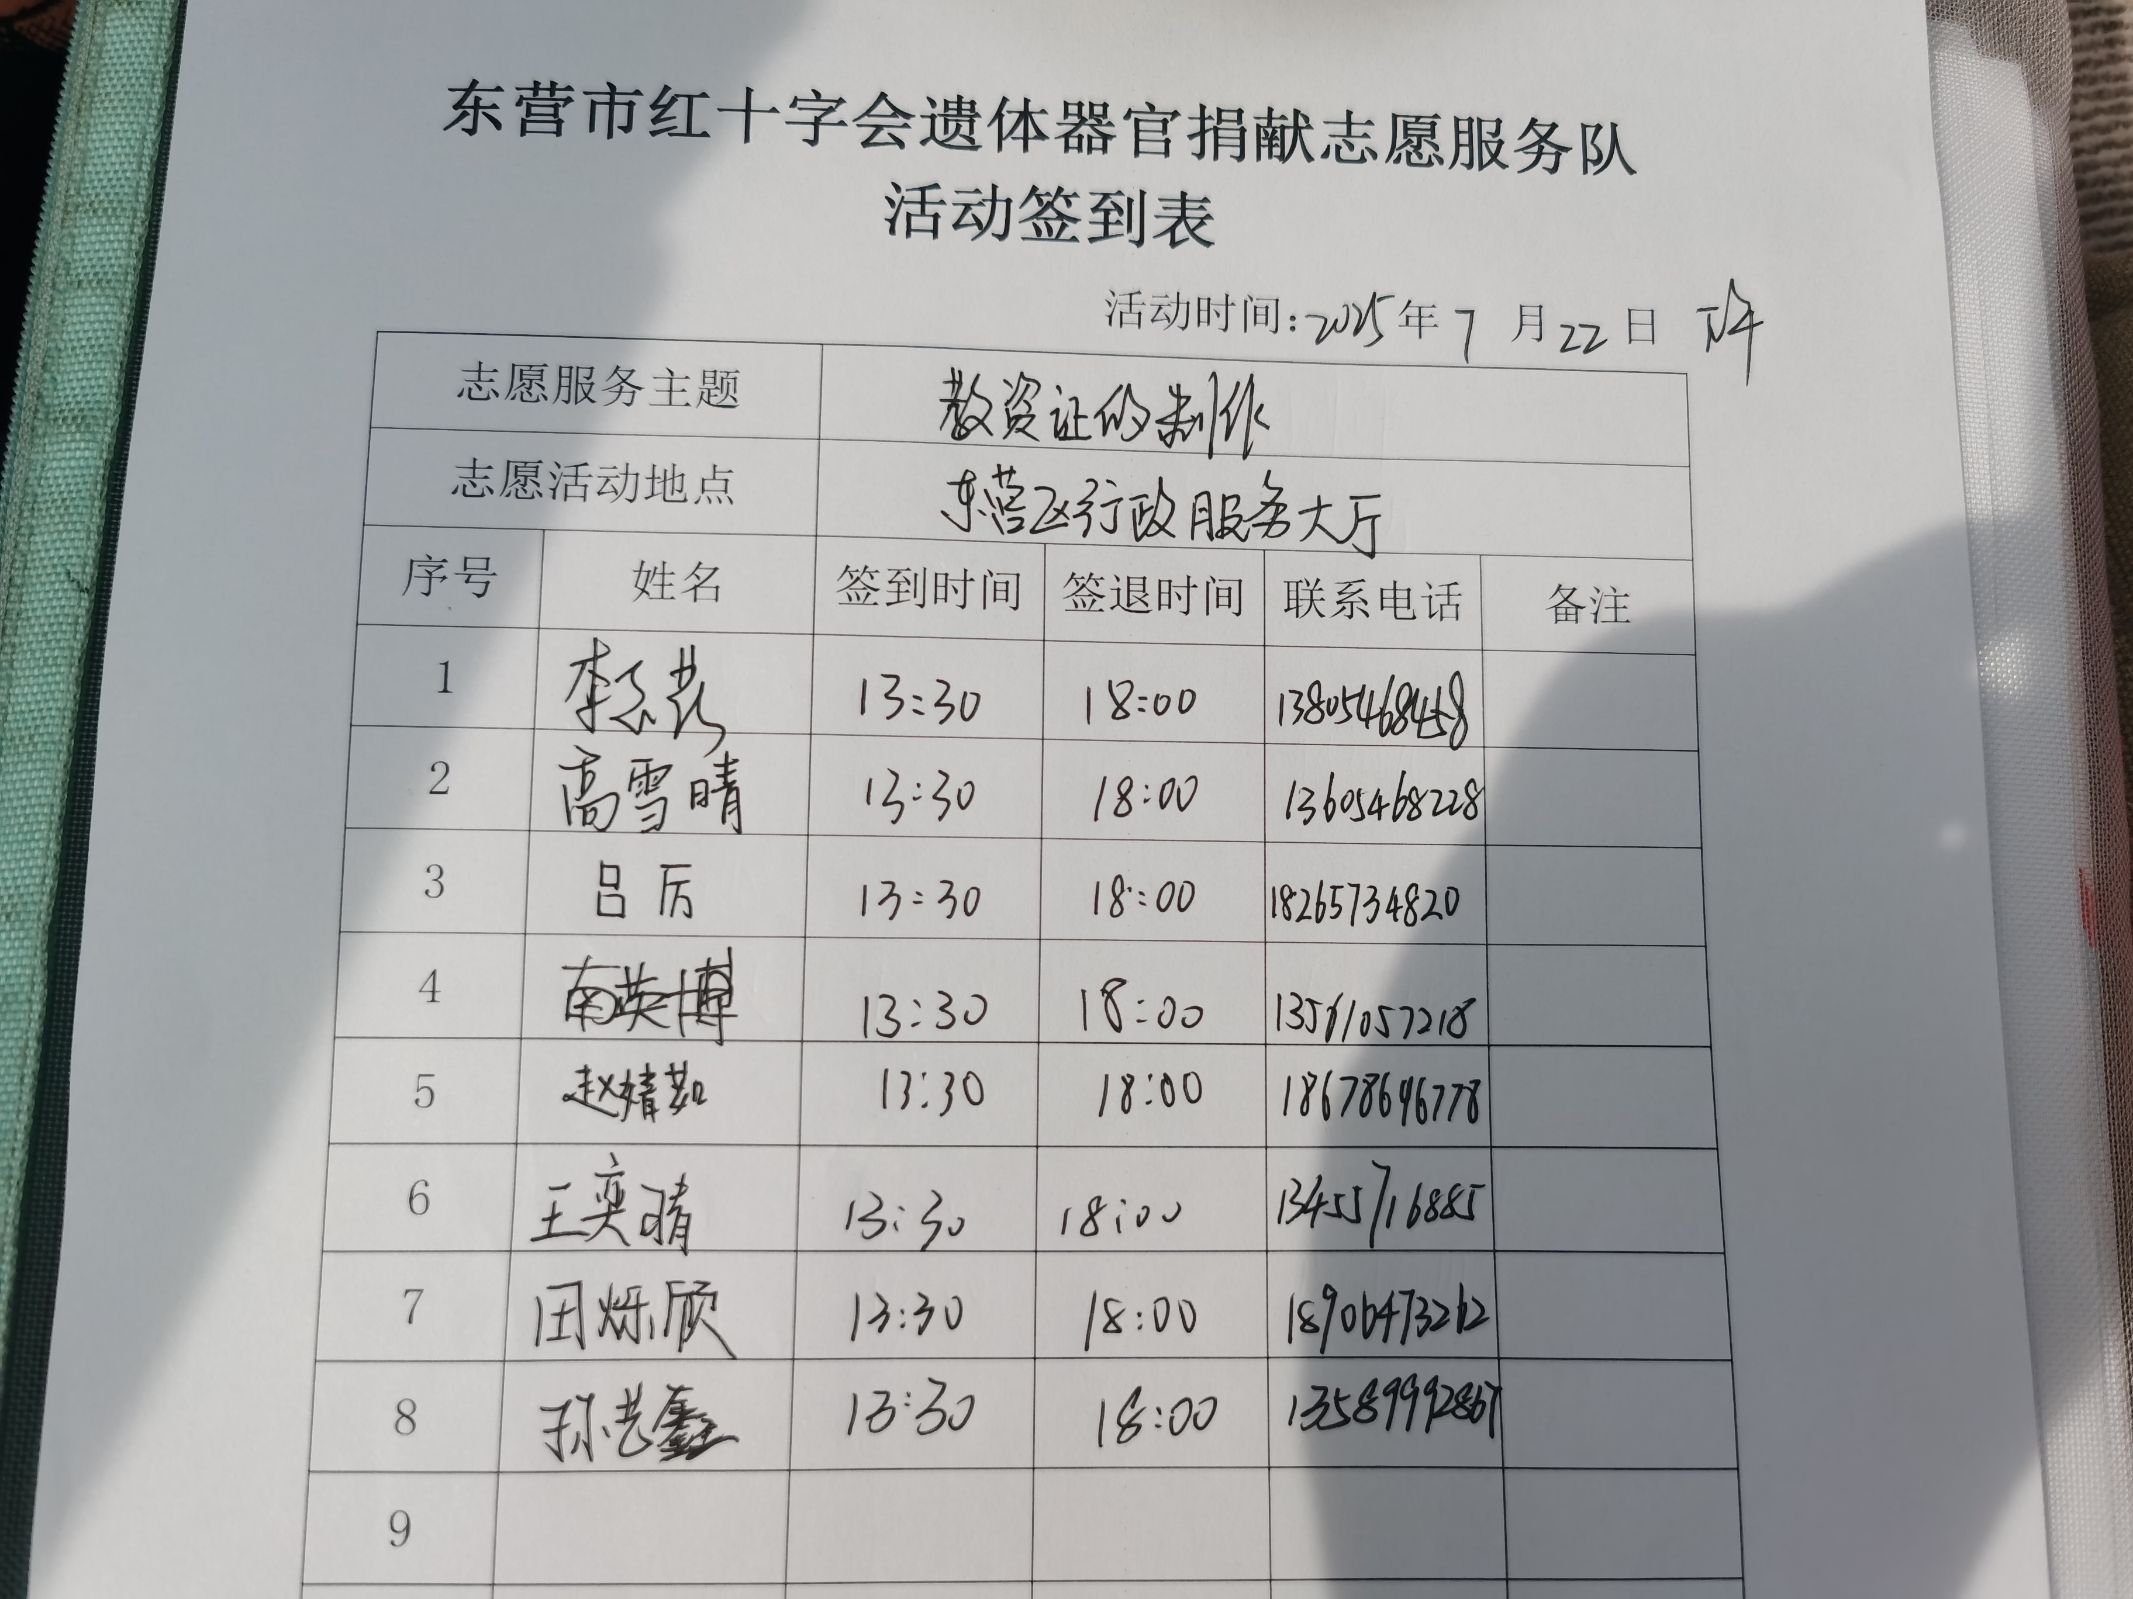 东营市红十字会遗体器官捐献志愿服务队
活动签到表
活动时间:2025年7月22日 下午
志愿服务主题 教资证的制作
志愿活动地点 东营区行政服务大厅
序号 姓名 签到时间 签退时间 联系电话 备注
1 李 13:30 18:00 13805468458
2 高雪晴 13:30 18:00 13605468228
3 吕厉 13:30 18:00 18265734820
4 南英博 13:30 18:00 13561057218
5 赵婧茹 13:30 18:00 18678696778
6 王奕晴 13:30 18:00 13455716885
7 田烁颀 13:30 18:00 18906473262
8 孙艺鑫 13:30 18:00 13589992867
9